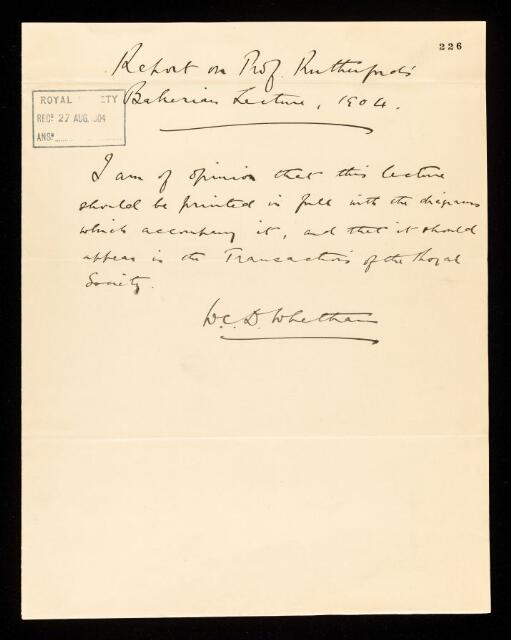 226
Report on Prof. Rutherford's
Bakerian Lecture, 1904.
ROYAL ETY
REC? 27 AUG. 904
ANS?
I am of opinion that this lecture
should be printed in full with the diagrams
which accompany it, and that it should
appear in the Transactions of the Royal
Society.
W.C.D. Whetham